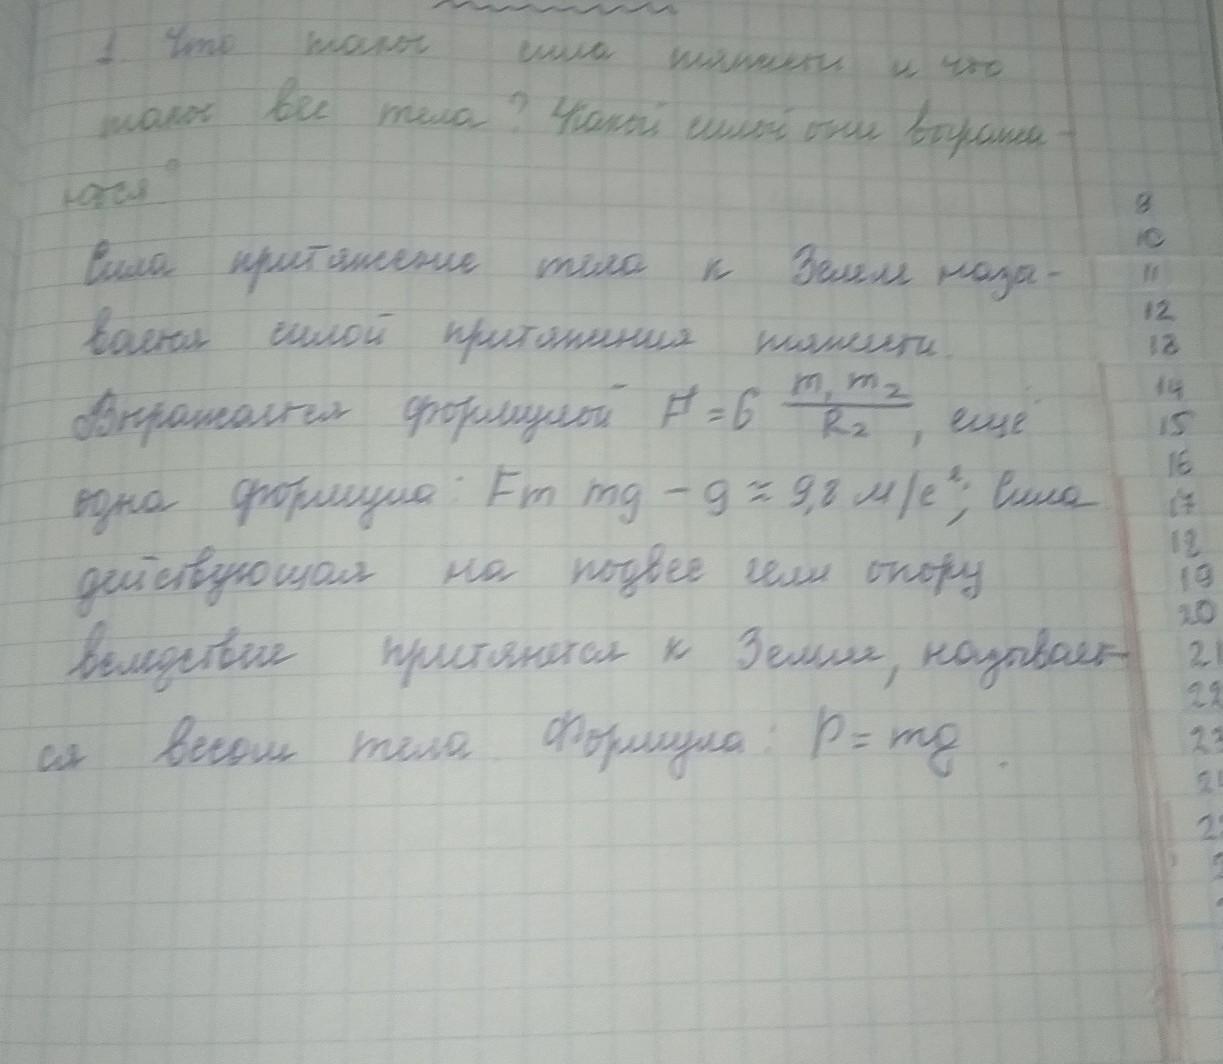 1. Что такое сила тяжести и что
такое вес тела? Какой силой они выража-
ются?
Сила притяжение тела к Земле назы-
вается силой притяжения тяжести.
Выражается формулой F = G m₁ m₂ / R₂, ещё
одна формула: Fт mg - g ≈ 9,8 м/с²; Сила
действующая на подвес или опору
вследствие притянется к Земле, называет-
ся весом тела. Формула: P = mg.
9
10
11
12
13
14
15
16
17
18
19
20
21
22
23